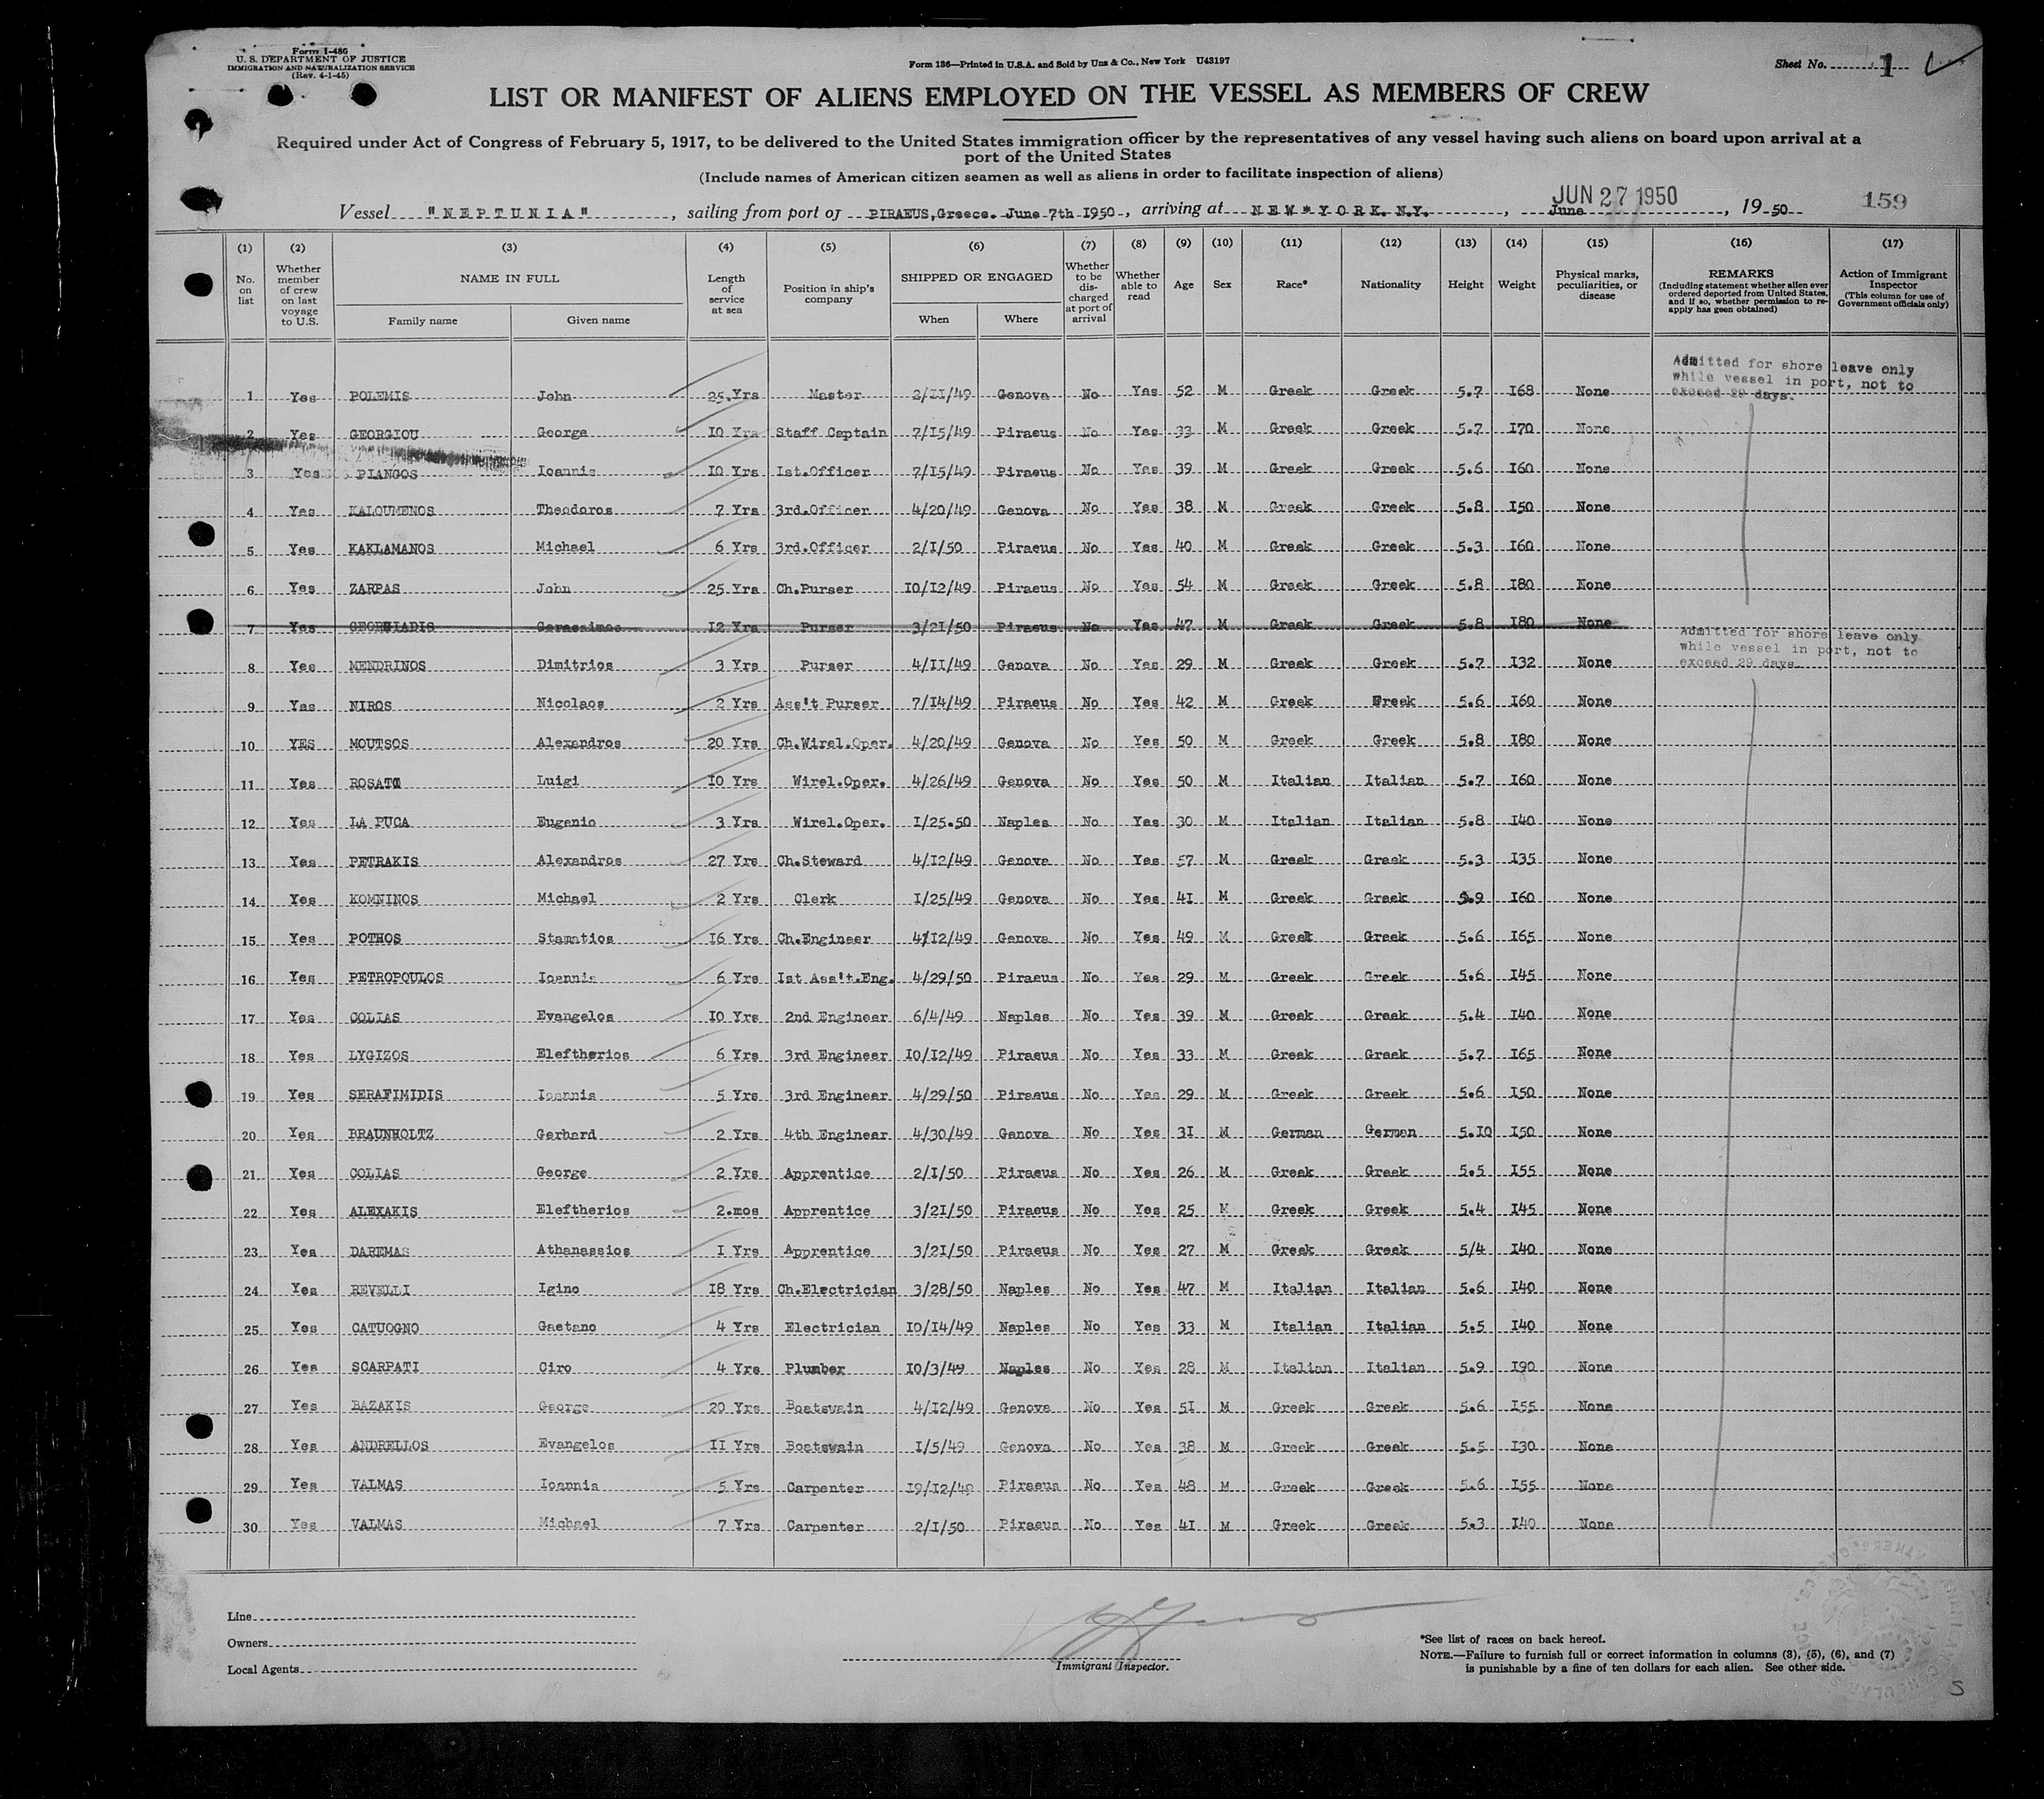 Form I-486
U. S. DEPARTMENT OF JUSTICE
IMMIGRATION AND NATURALIZATION SERVICE
(Rev. 4-1-45)
Form 136—Printed in U.S.A. and Sold by Unz & Co., New York U43197
Sheet No. 1
LIST OR MANIFEST OF ALIENS EMPLOYED ON THE VESSEL AS MEMBERS OF CREW
Required under Act of Congress of February 5, 1917, to be delivered to the United States immigration officer by the representatives of any vessel having such aliens on board upon arrival at a
port of the United States
(Include names of American citizen seamen as well as aliens in order to facilitate inspection of aliens)
JUN 27 1950
Vessel "NEPTUNIA", sailing from port of PIRAEUS, Greece. June 7th I950, arriving at NEW*YORK. N.Y., June, 19 50 159
(1) (2) (3) (4) (5) (6) (7) (8) (9) (10) (11) (12) (13) (14) (15) (16) (17)
No. on list | Whether member of crew on last voyage to U.S. | NAME IN FULL Family name Given name | Length of service at sea | Position in ship's company | SHIPPED OR ENGAGED When Where | Whether to be discharged at port of arrival | Whether able to read | Age | Sex | Race* | Nationality | Height | Weight | Physical marks, peculiarities, or disease | REMARKS (Including statement whether alien ever ordered deported from United States, and if so, whether permission to re-apply has geen obtained) | Action of Immigrant Inspector (This column for use of Government officials only)
Admitted for shore leave only
while vessel in port, not to
exceed 29 days.
1 Yes POLEMIS John 25.Yrs Master 2/II/49 Genova No Yes 52 M Greek Greek 5.7 I68 None
2 Yes GEORGIOU George IO Yrs Staff Captain 7/I5/49 Piraeus No Yes 33 M Greek Greek 5.7 I70 None
3 Yes PIANGOS Ioannis IO Yrs Ist.Officer 7/I5/49 Piraeus No Yes 39 M Greek Greek 5.6 I60 None
4 Yes KALOUMENOS Theodoros 7 Yrs 3rd.Officer 4/20/49 Genova No Yes 38 M Greek Greek 5.8 I50 None
5 Yes KAKLAMANOS Michael 6 Yrs 3rd.Officer 2/I/50 Piraeus No Yes 40 M Greek Greek 5.3 I60 None
6 Yes ZARPAS John 25 Yrs Ch.Purser IO/I2/49 Piraeus No Yes 54 M Greek Greek 5.8 I80 None
7 Yes GEORGIADIS Gerassimos I2 Yrs Purser 3/2I/50 Piraeus No Yes 47 M Greek Greek 5.8 I80 None
Admitted for shore leave only
while vessel in port, not to
exceed 29 days.
8 Yes MENDRINOS Dimitrios 3 Yrs Purser 4/II/49 Genova No Yes 29 M Greek Greek 5.7 I32 None
9 Yes NIROS Nicolaos 2 Yrs Ass't Purser 7/I4/49 Piraeus No Yes 42 M Greek Greek 5.6 I60 None
10 YES MOUTSOS Alexandros 20 Yrs Ch.Wirel.Oper. 4/20/49 Genova No Yes 50 M Greek Greek 5.8 I80 None
11 Yes ROSATO Luigi IO Yrs Wirel.Oper. 4/26/49 Genova No Yes 50 M Italian Italian 5.7 I60 None
12 Yes LA PUCA Eugenio 3 Yrs Wirel.Oper. I/25.50 Naples No Yes 30 M Italian Italian 5.8 I40 None
13 Yes PETRAKIS Alexandros 27 Yrs Ch.Steward 4/I2/49 Genova No Yes 57 M Greek Greek 5.3 I35 None
14 Yes KOMNINOS Michael 2 Yrs Clerk I/25/49 Genova No Yes 4I M Greek Greek 5.9 I60 None
15 Yes POTHOS Stamatios I6 Yrs Ch.Engineer 4/I2/49 Genova No Yes 49 M Greek Greek 5.6 I65 None
16 Yes PETROPOULOS Ioannis 6 Yrs Ist Ass't.Eng. 4/29/50 Piraeus No Yes 29 M Greek Greek 5.6 I45 None
17 Yes COLIAS Evangelos IO Yrs 2nd Engineer 6/4/49 Naples No Yes 39 M Greek Greek 5.4 I40 None
18 Yes LYGIZOS Eleftherios 6 Yrs 3rd Engineer IO/I2/49 Piraeus No Yes 33 M Greek Greek 5.7 I65 None
19 Yes SERAFIMIDIS Ioannis 5 Yrs 3rd Engineer 4/29/50 Piraeus No Yes 29 M Greek Greek 5.6 I50 None
20 Yes BRAUNHOLTZ Gerhard 2 Yrs 4th Engineer 4/30/49 Genova No Yes 3I M German German 5.IO I50 None
21 Yes COLIAS George 2 Yrs Apprentice 2/I/50 Piraeus No Yes 26 M Greek Greek 5.5 I55 None
22 Yes ALEXAKIS Eleftherios 2.mos Apprentice 3/2I/50 Piraeus No Yes 25 M Greek Greek 5.4 I45 None
23 Yes DAREMAS Athanassios I Yrs Apprentice 3/2I/50 Piraeus No Yes 27 M Greek Greek 5/4 I40 None
24 Yes REVELLI Igino I8 Yrs Ch.Electrician 3/28/50 Naples No Yes 47 M Italian Italian 5.6 I40 None
25 Yes CATUOGNO Gaetano 4 Yrs Electrician IO/I4/49 Naples No Yes 33 M Italian Italian 5.5 I40 None
26 Yes SCARPATI Ciro 4 Yrs Plumber IO/3/49 Naples No Yes 28 M Italian Italian 5.9 I90 None
27 Yes BAZAKIS George 20 Yrs Boatswain 4/I2/49 Genova No Yes 5I M Greek Greek 5.6 I55 None
28 Yes ANDRELLOS Evangelos II Yrs Boatswain I/5/49 Genova No Yes 38 M Greek Greek 5.5 I30 None
29 Yes VALMAS Ioannis 5 Yrs Carpenter I9/I2/49 Piraeus No Yes 48 M Greek Greek 5.6 I55 None
30 Yes VALMAS Michael 7 Yrs Carpenter 2/I/50 Piraeus No Yes 4I M Greek Greek 5.3 I40 None
Line
Owners
Local Agents
Immigrant Inspector.
*See list of races on back hereof.
NOTE.—Failure to furnish full or correct information in columns (3), (5), (6), and (7)
is punishable by a fine of ten dollars for each alien. See other side.
S